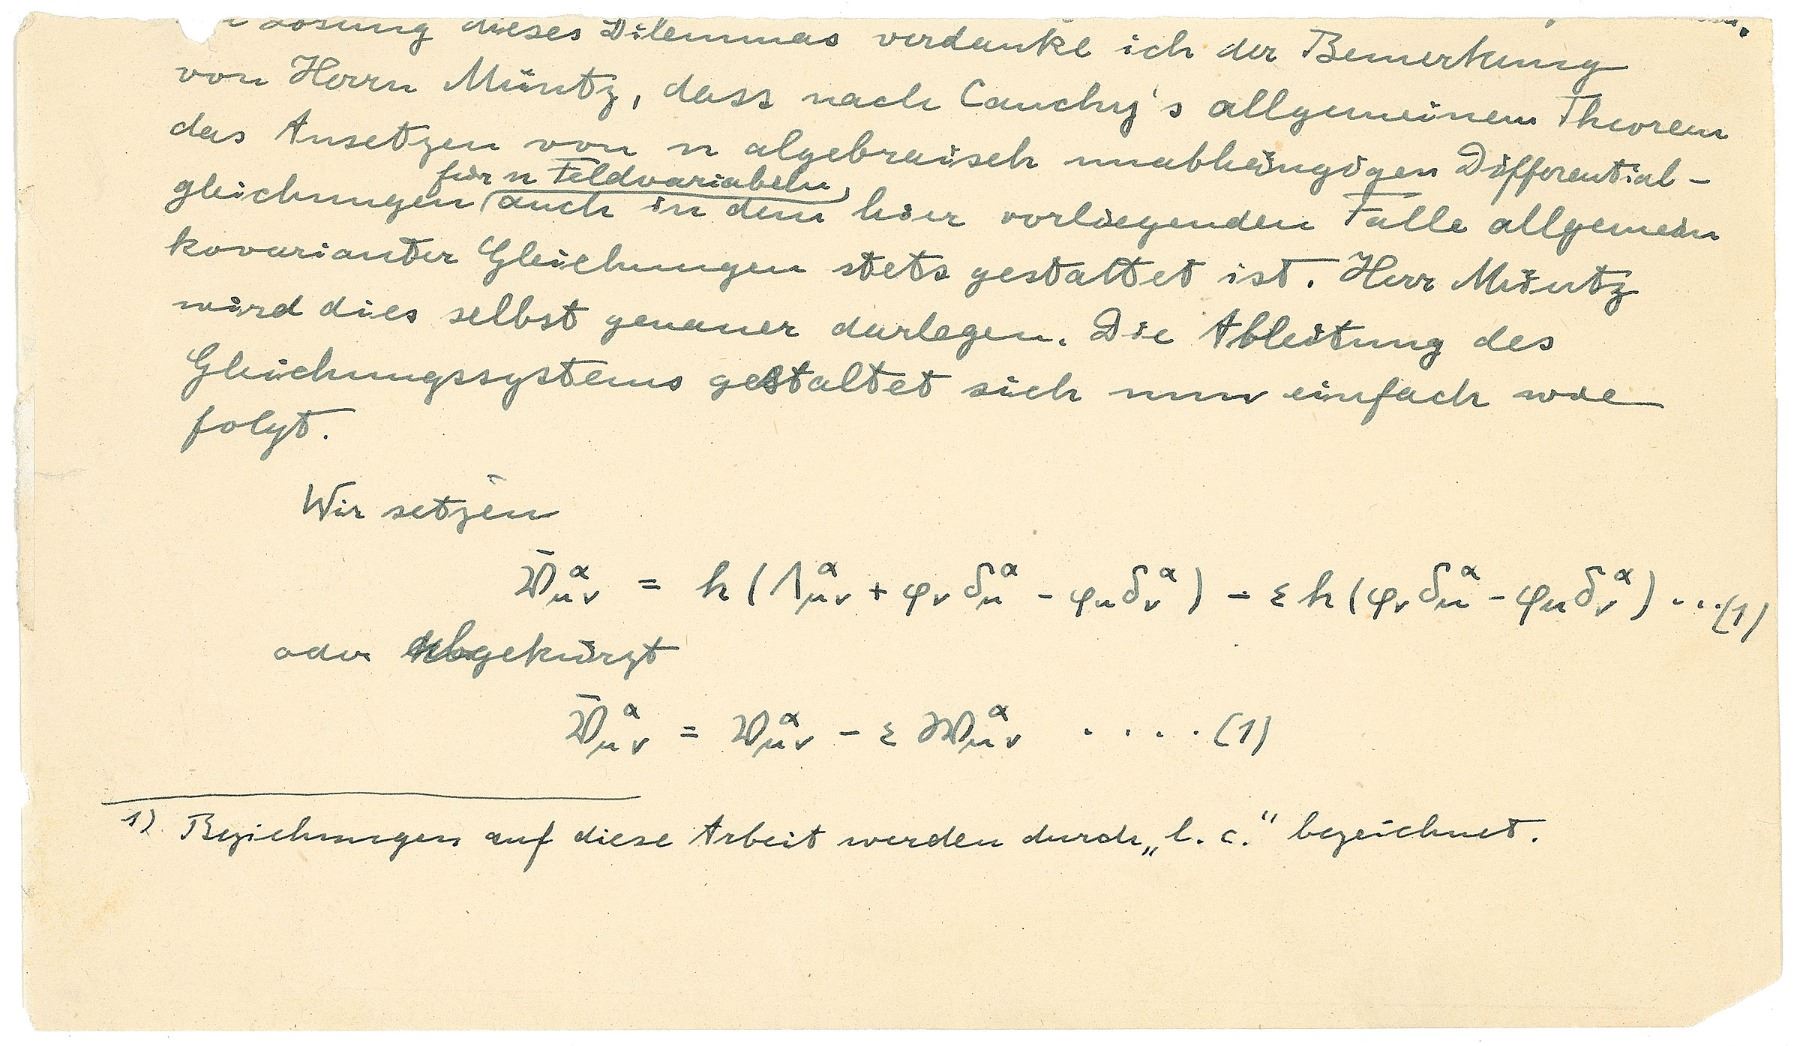 Lösung dieses Dilemmas verdanke ich der Bemerkung
von Herrn Müntz, dass nach Cauchy's allgemeinem Theorem
das Ansetzen von n algebraisch unabhängigen Differential-
für n Feldvariabeln
gleichungen auch in dem hier vorliegenden Falle allgemein
kovarianter Gleichungen stets gestattet ist. Herr Müntz
wird dies selbst genauer darlegen. Die Ableitung des
Gleichungssystems gestaltet sich nun einfach wie
folgt.
Wir setzen
𝔙̄^α_{μν} = h(Λ^α_{μν} + φ_ν δ^α_μ - φ_μ δ^α_ν) - ε h(φ_ν δ^α_μ - φ_μ δ^α_ν) ...(1)
oder abgekürzt
𝔙̄^α_{μν} = 𝔙^α_{μν} - ε 𝔚^α_{μν} .....(1)
1) Beziehungen auf diese Arbeit werden durch „l. c.“ bezeichnet.